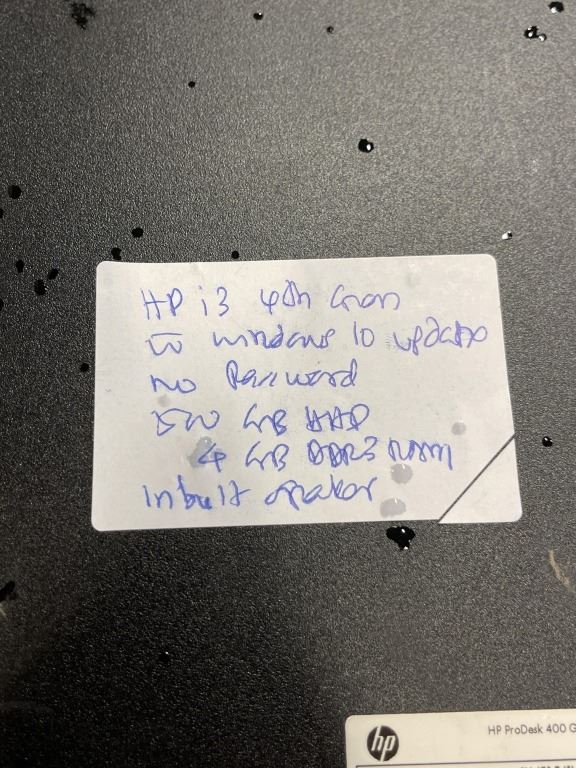 HP i3 4th Gen
w̅ windows 10 update
no Password
500 GB HDD
4 GB DDR3 Ram
Inbuilt speaker
hp
HP ProDesk 400 G